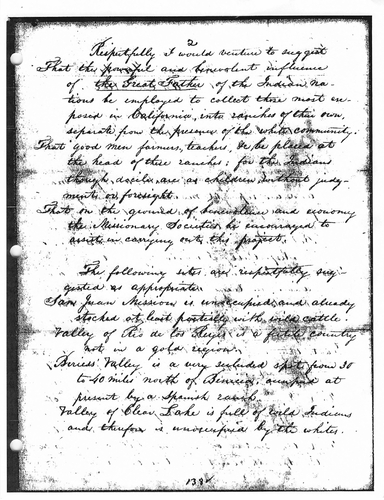 2
Respectfully I would venture to suggest
That the powerful and benevolent influence
of the Great Father of the Indian Na-
tions be employed to collect those most ex-
posed in California, into ranches of their own,
separate from the presence of the white community.
That good men farmers, teachers, &c be placed at
the head of these ranches; for the Indians
though docile are as children without judg-
ment or foresight.
That on the ground of benevolence and economy
the Missionary Societies be encouraged to
assist in carrying out this project.
The following sites are respectfully sug-
gested as appropriate.
San Juan Mission is unoccupied and already
stocked at least partially with wild cattle.
Valley of Rio de los Reyes is a fertile country
not in a gold region.
Valley is a very secluded spot from 30
to 40 miles north of Benicia, occupied at
present by a Spanish ranch.
Valley of Clear Lake is full of wild Indians
and therefore is unoccupied by the whites.
138